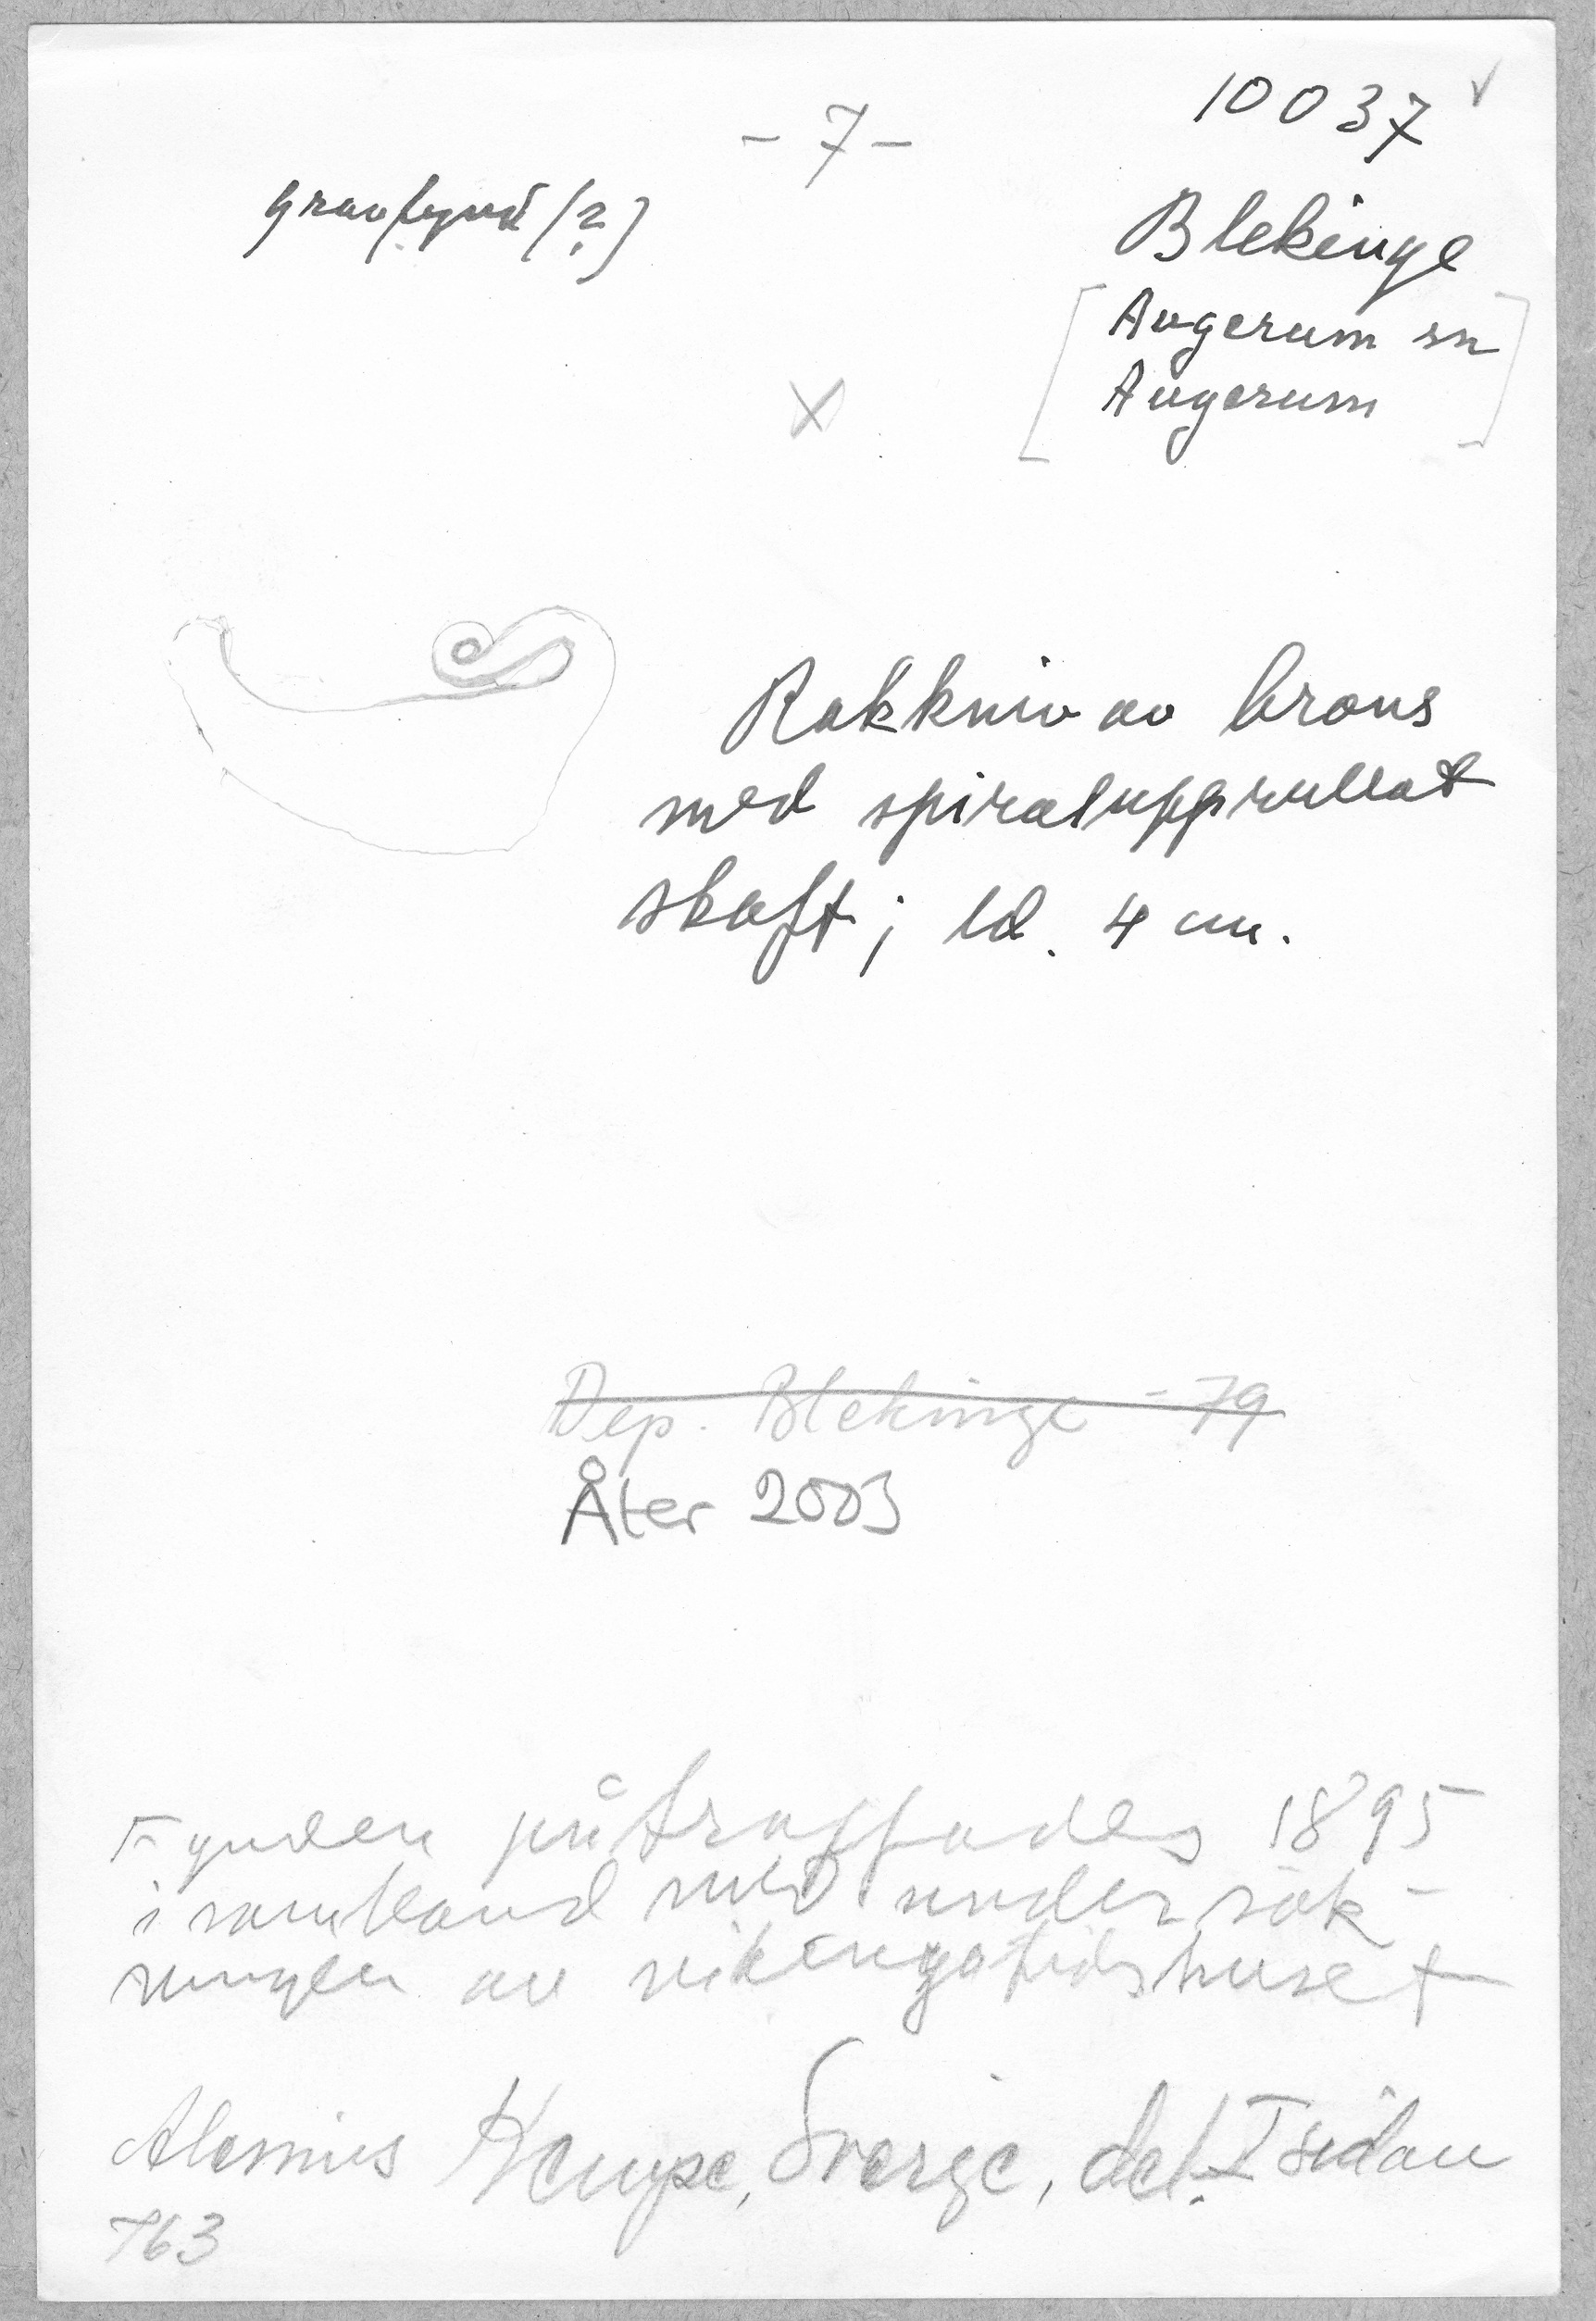 10037 ✓
- 7 -
gravfynd (?)
Blekinge
[Augerum sn
Augerum]
X
Rakkniv av brons
med spiralupprullat
skaft; ld. 4 cm.
Dep. Blekinge -79
Åter 2003
Fynden påträffades 1895
i samband med undersök-
ningen av vikingatidshuset
Alenius Kempe, Sverge, del. I sidan
763